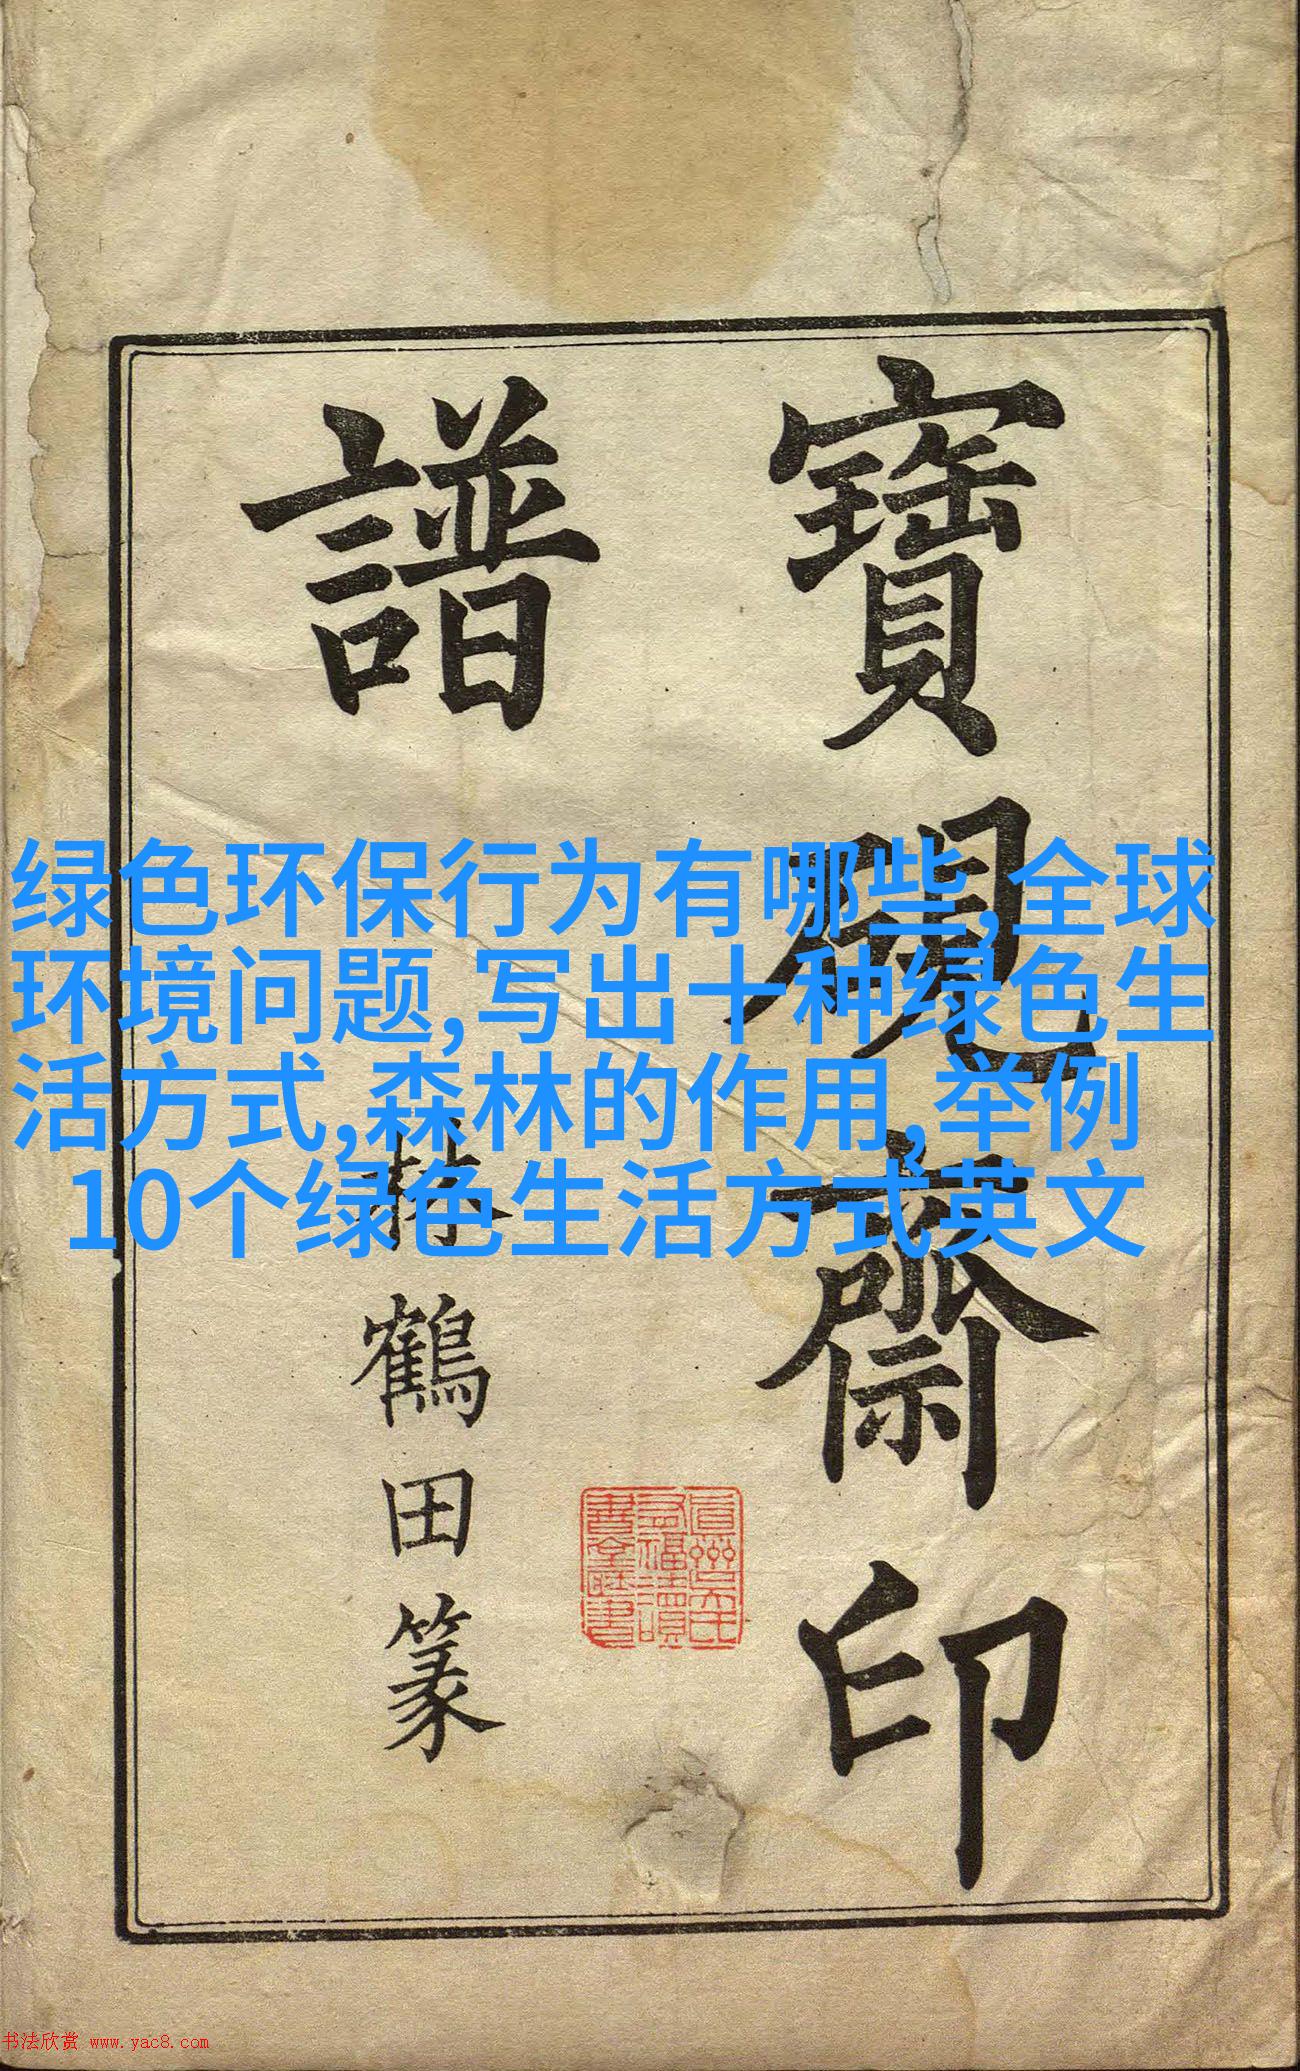 寶硯齋印
譜
林鶴田篆
绿色环保行为有哪些,全球
环境问题,写出十种绿色生
活方式,森林的作用,举例
10个绿色生活方式英文
书法欣赏 www.yac8.com